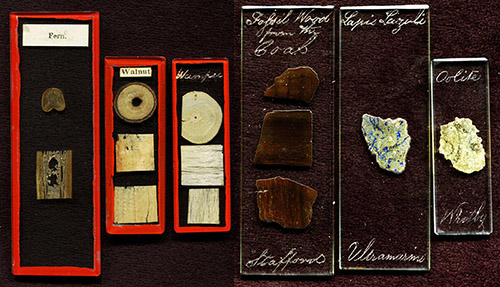 Fern.
Walnut
Fossil Wood
from the
Coal
Stafford
Lapis Lazuli
Ultramarine
Oolite
Whitby